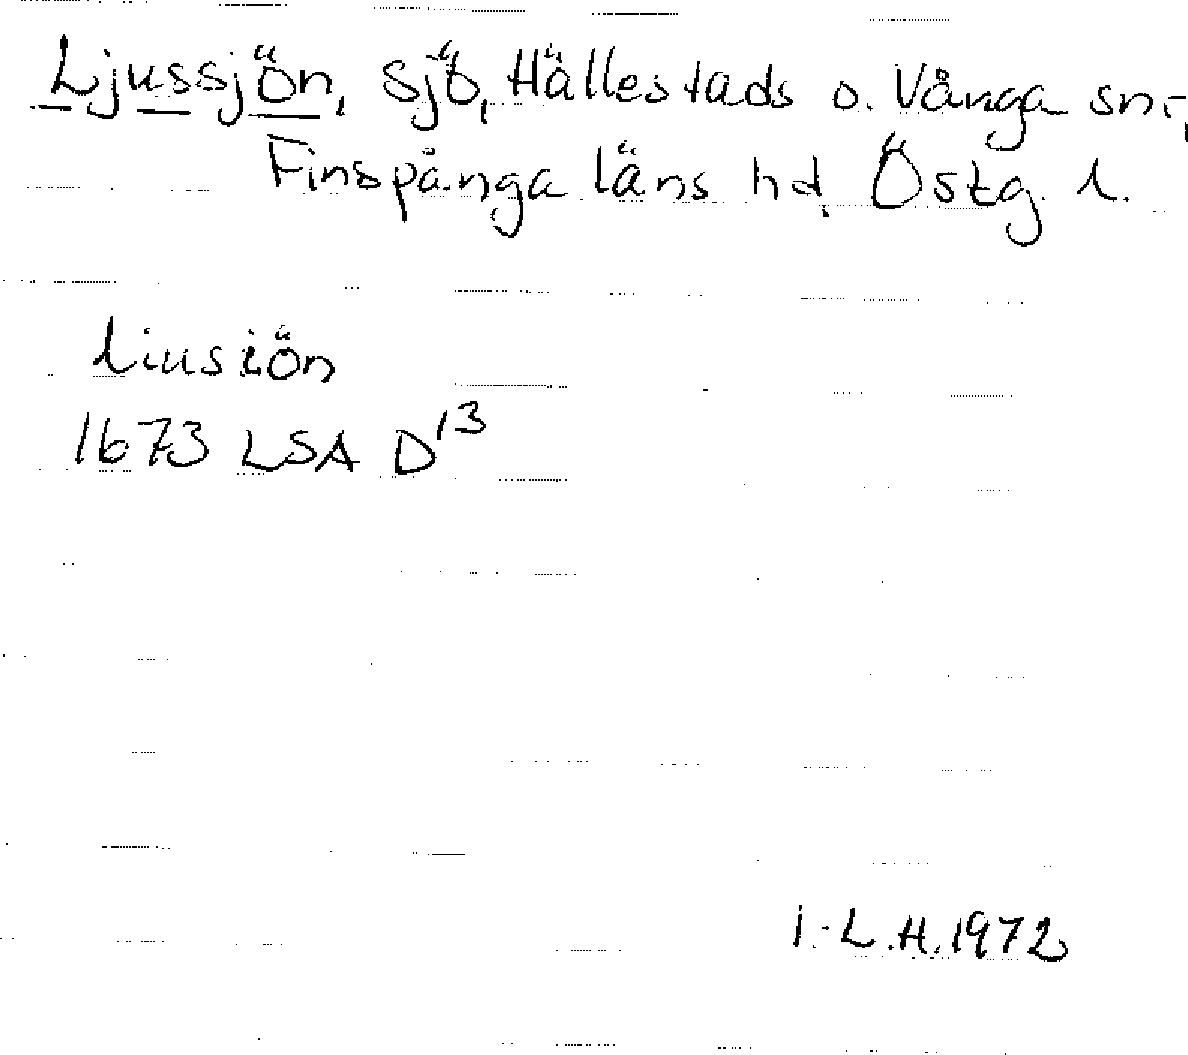 Ljussjön, sjö, Hällestads o. Vånga snr,
Finspånga läns hd, Östg. l.
liusiön
1673 LSA D13
I.-L.H. 1972